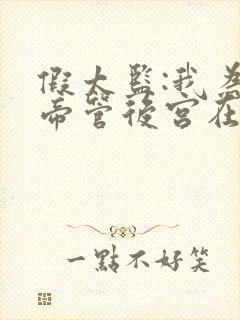 假太監:我為
帝管後宮在
一點不好笑